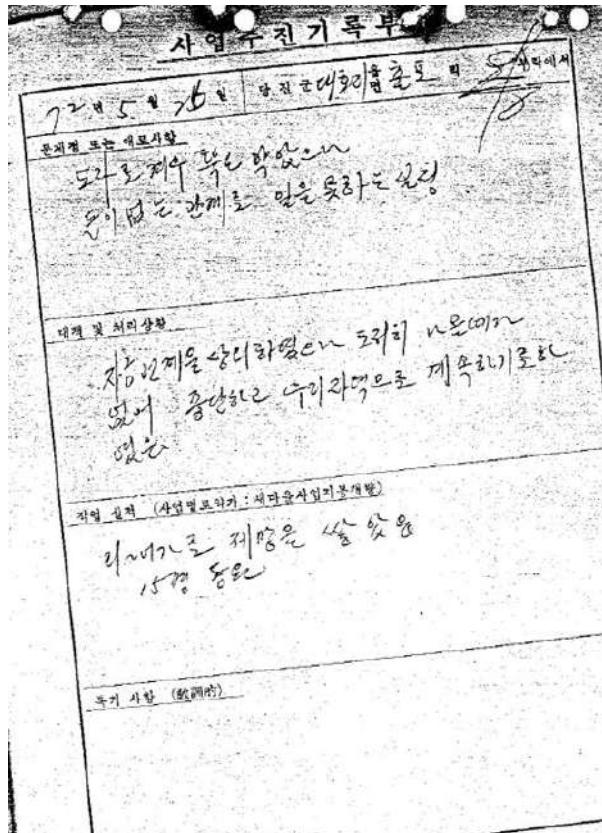 사업추진기록부
72년 5월 26일 당진군 대호지면 출포리 부락에서
문제점 또는 애로사항
도라로 겨우 뚝은 막았으나
돈이 없는 관계로 일을 못하는 실정
대책 및 처리상황
자금관계을 상의하였으나 도저히 나올데가
없어 중단하고 우리자력으로 계속하기로하
였음
작업 실적 (사업별로위가 : 새마을사업지붕개량)
리 제방을 쌓았음
15명 동원
특기 사항